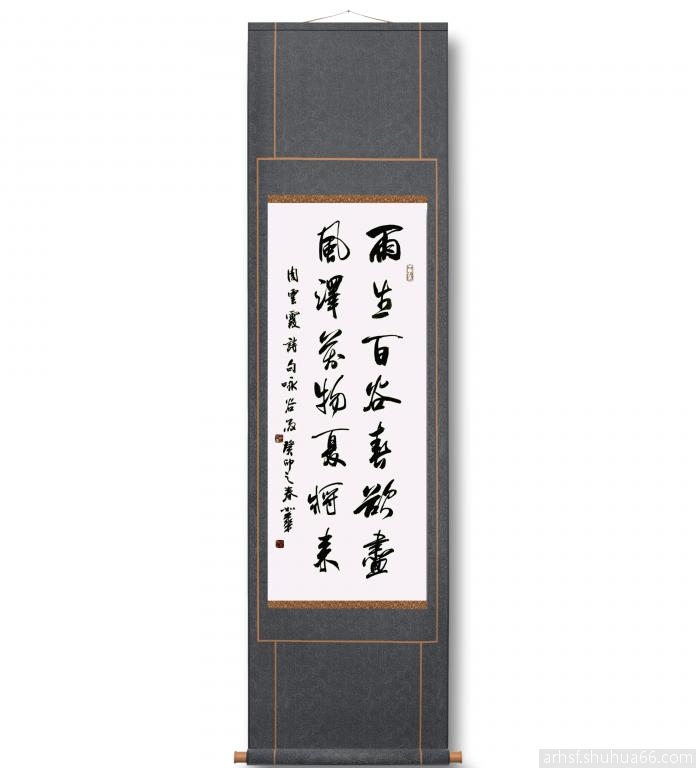 雨生百谷春欲盡
風澤萬物夏將来
周雲霞詩句咏谷雨
癸卯之春
arhsf.shuhua66.com